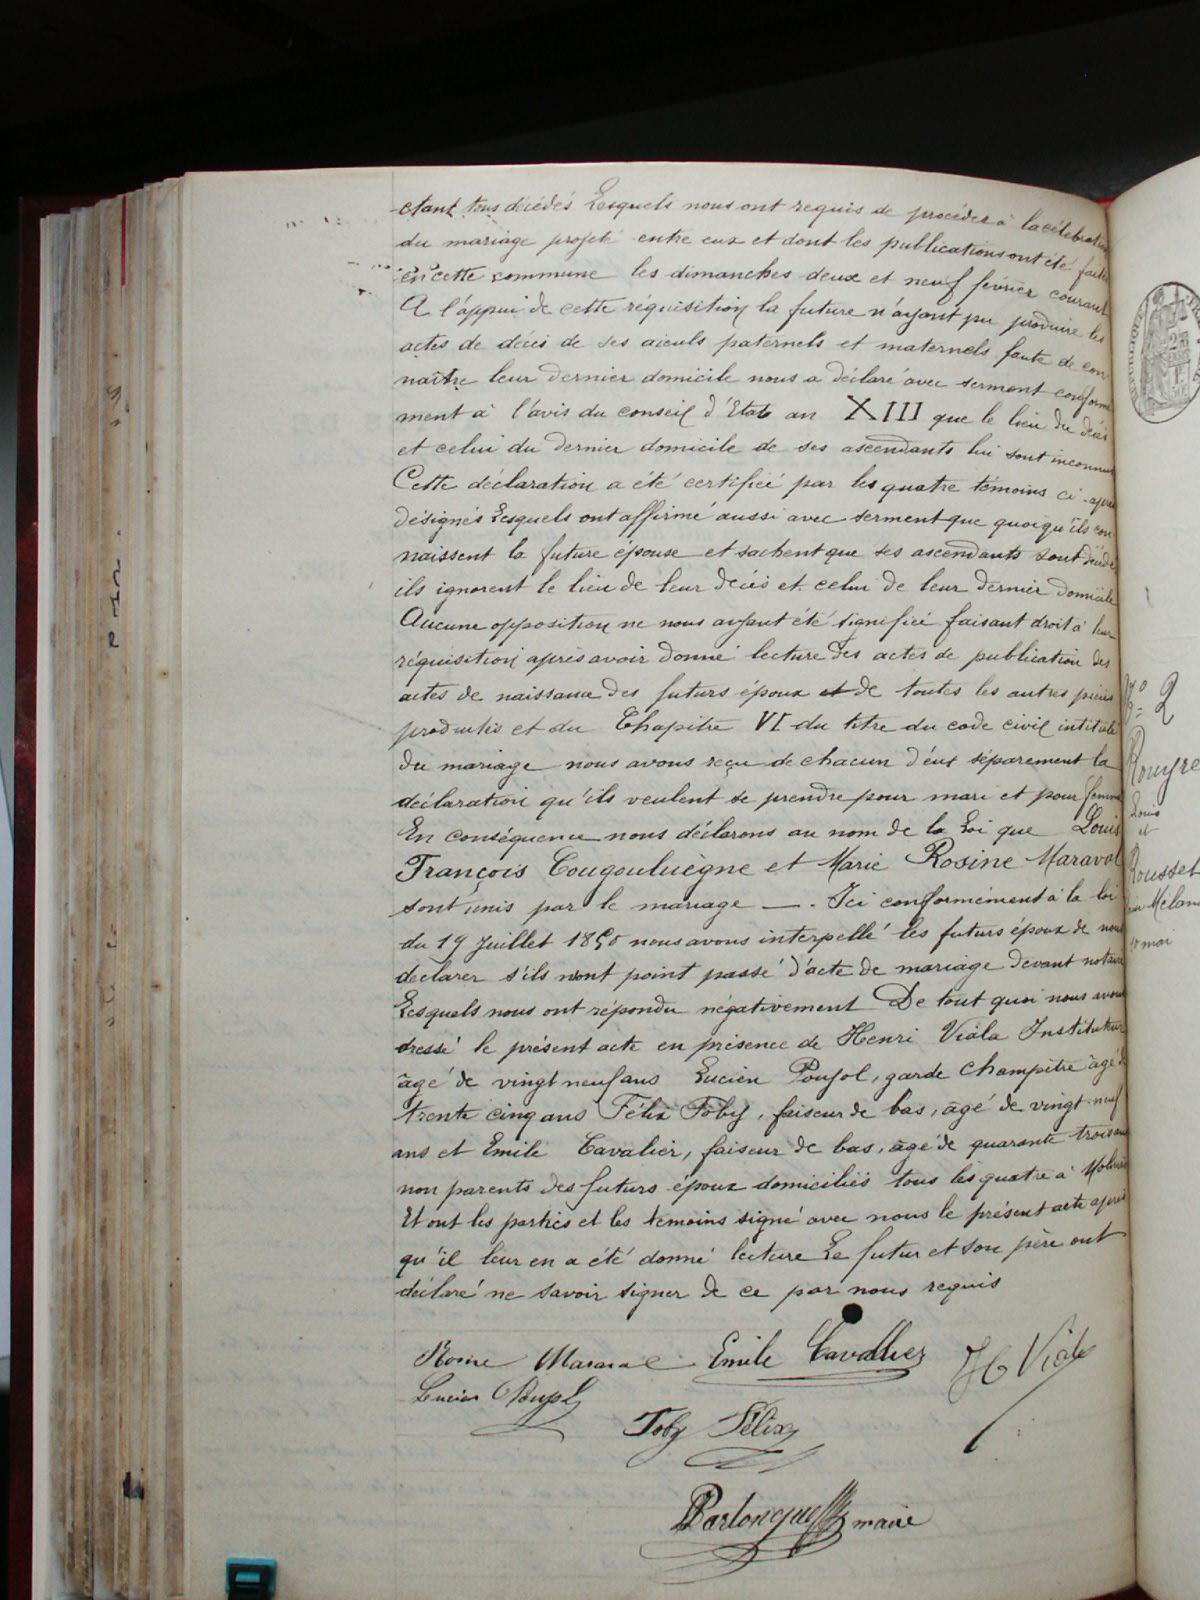 étant tous décédés Lesquels nous ont requis de procéder à la célébration
du mariage projeté entre eux et dont les publications ont été faites
en cette commune les dimanches deux et neuf février courant
A l'appui de cette réquisition la future n'ayant pu produire les
actes de décès de ses aieuls paternels et maternels faute de con
naître leur dernier domicile nous a déclaré avec serment conformé
ment à l'avis du conseil d'Etat an XIII que le lieu du décès
et celui du dernier domicile de ses ascendants lui sont inconnus
Cette déclaration a été certifiée par les quatre témoins ci-après
désignés Lesquels ont affirmé aussi avec serment que quoiqu'ils con
naissent la future épouse et sachent que ses ascendants sont décédés
ils ignorent le lieu de leur décès et celui de leur dernier domicile
Aucune opposition ne nous ayant été signifiée faisant droit à leur
réquisition après avoir donné lecture des actes de publication des
actes de naissance des futurs époux et de toutes les autres pièces
produites et du Chapitre VI du titre du code civil intitulé
du mariage nous avons reçu de chacun d'eux séparement la
déclaration qu'ils veulent se prendre pour mari et pour femme
En conséquence nous déclarons au nom de la Loi que Louis
François Cougouluègne et Marie Rosine Maraval
sont unis par le mariage —. Ici conformément à la loi
du 19 Juillet 1850 nous avons interpellé les futurs époux de nous
declarer s'ils n'ont point passé d'acte de mariage devant notaire
Lesquels nous ont répondu négativement De tout quoi nous avons
dressé le présent acte en présence de Henri Viala Instituteur
âgé de vingt neuf ans Lucien Poujol, garde champêtre âgé de
trente cinq ans Félix Toby, faiseur de bas, âgé de vingt-neuf
ans et Emile Cavalier, faiseur de bas, âgé de quarante trois ans
non parents des futurs époux domiciliés tous les quatre à
Et ont les parties et les témoins signé avec nous le présent acte après
qu'il leur en a été donné lecture Le futur et son père ont
déclaré ne savoir signer de ce par nous requis
Rosine Maraval Emile Cavallier H Viala
Lucien Poujol
Toby Félix
maire
N° 2
Rouyre
Louis
et
Rousset
10 mai